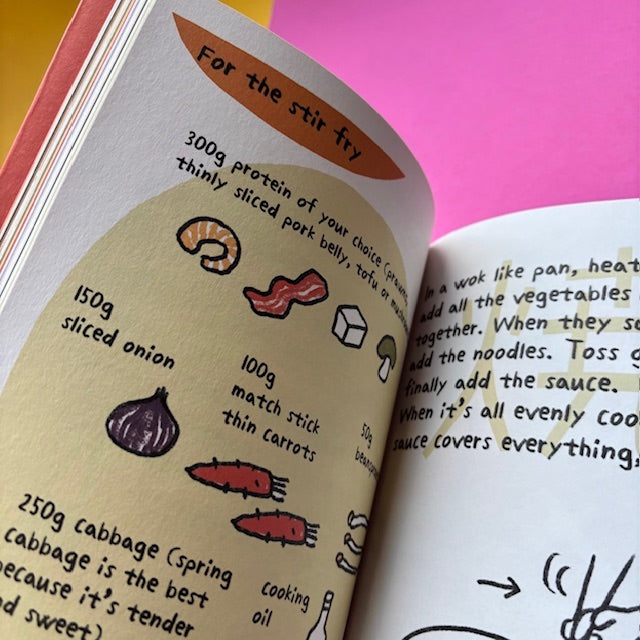 For the stir fry
300g protein of your choice (prawns,
thinly sliced pork belly, tofu or
150g
sliced onion
100g
match stick
thin carrots
50g
250g cabbage (spring
cabbage is the best
because it's tender
and sweet)
cooking
oil
In a wok like pan, heat
add all the vegetables
together. When they
add the noodles. Toss
finally add the sauce.
When it's all evenly
sauce covers everything,